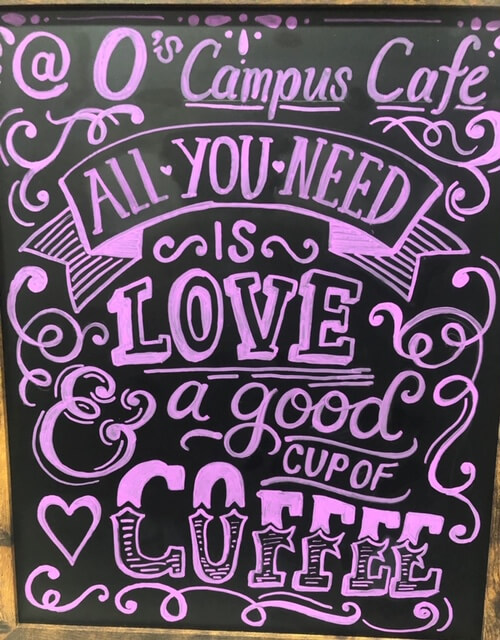 @ O's Campus Cafe
ALL • YOU • NEED
IS
LOVE
& a good
CUP OF
COFFEE